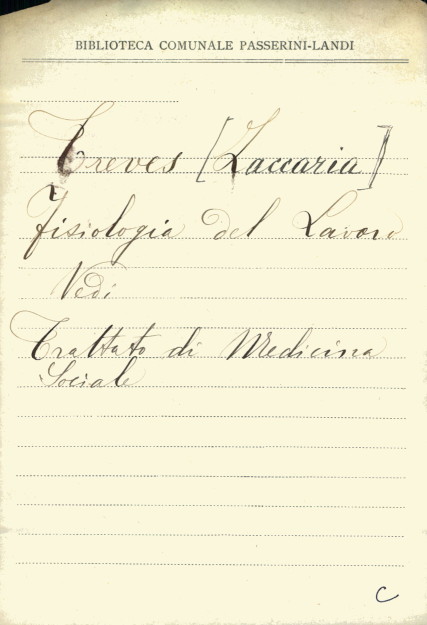 BIBLIOTECA COMUNALE PASSERINI-LANDI
Treves [Zaccaria]
Fisiologia del Lavoro
Vedi
Trattato di Medicina
Sociale
C